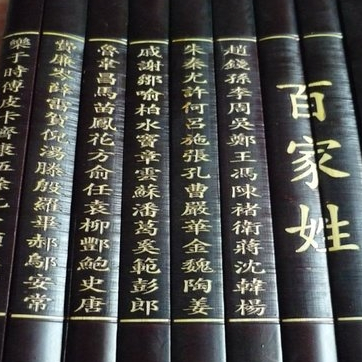 百家姓
趙錢孫李周吳鄭王馮陳褚衛蔣沈韓楊
朱秦尤許何呂施張孔曹嚴華金魏陶姜
戚謝鄒喻柏水竇章雲蘇潘葛奚範彭郎
魯韋昌馬苗鳳花方俞任袁柳酆鮑史唐
費廉岑薛雷賀倪湯滕殷羅畢郝鄔安常
樂于時傅皮卡齊康伍餘元